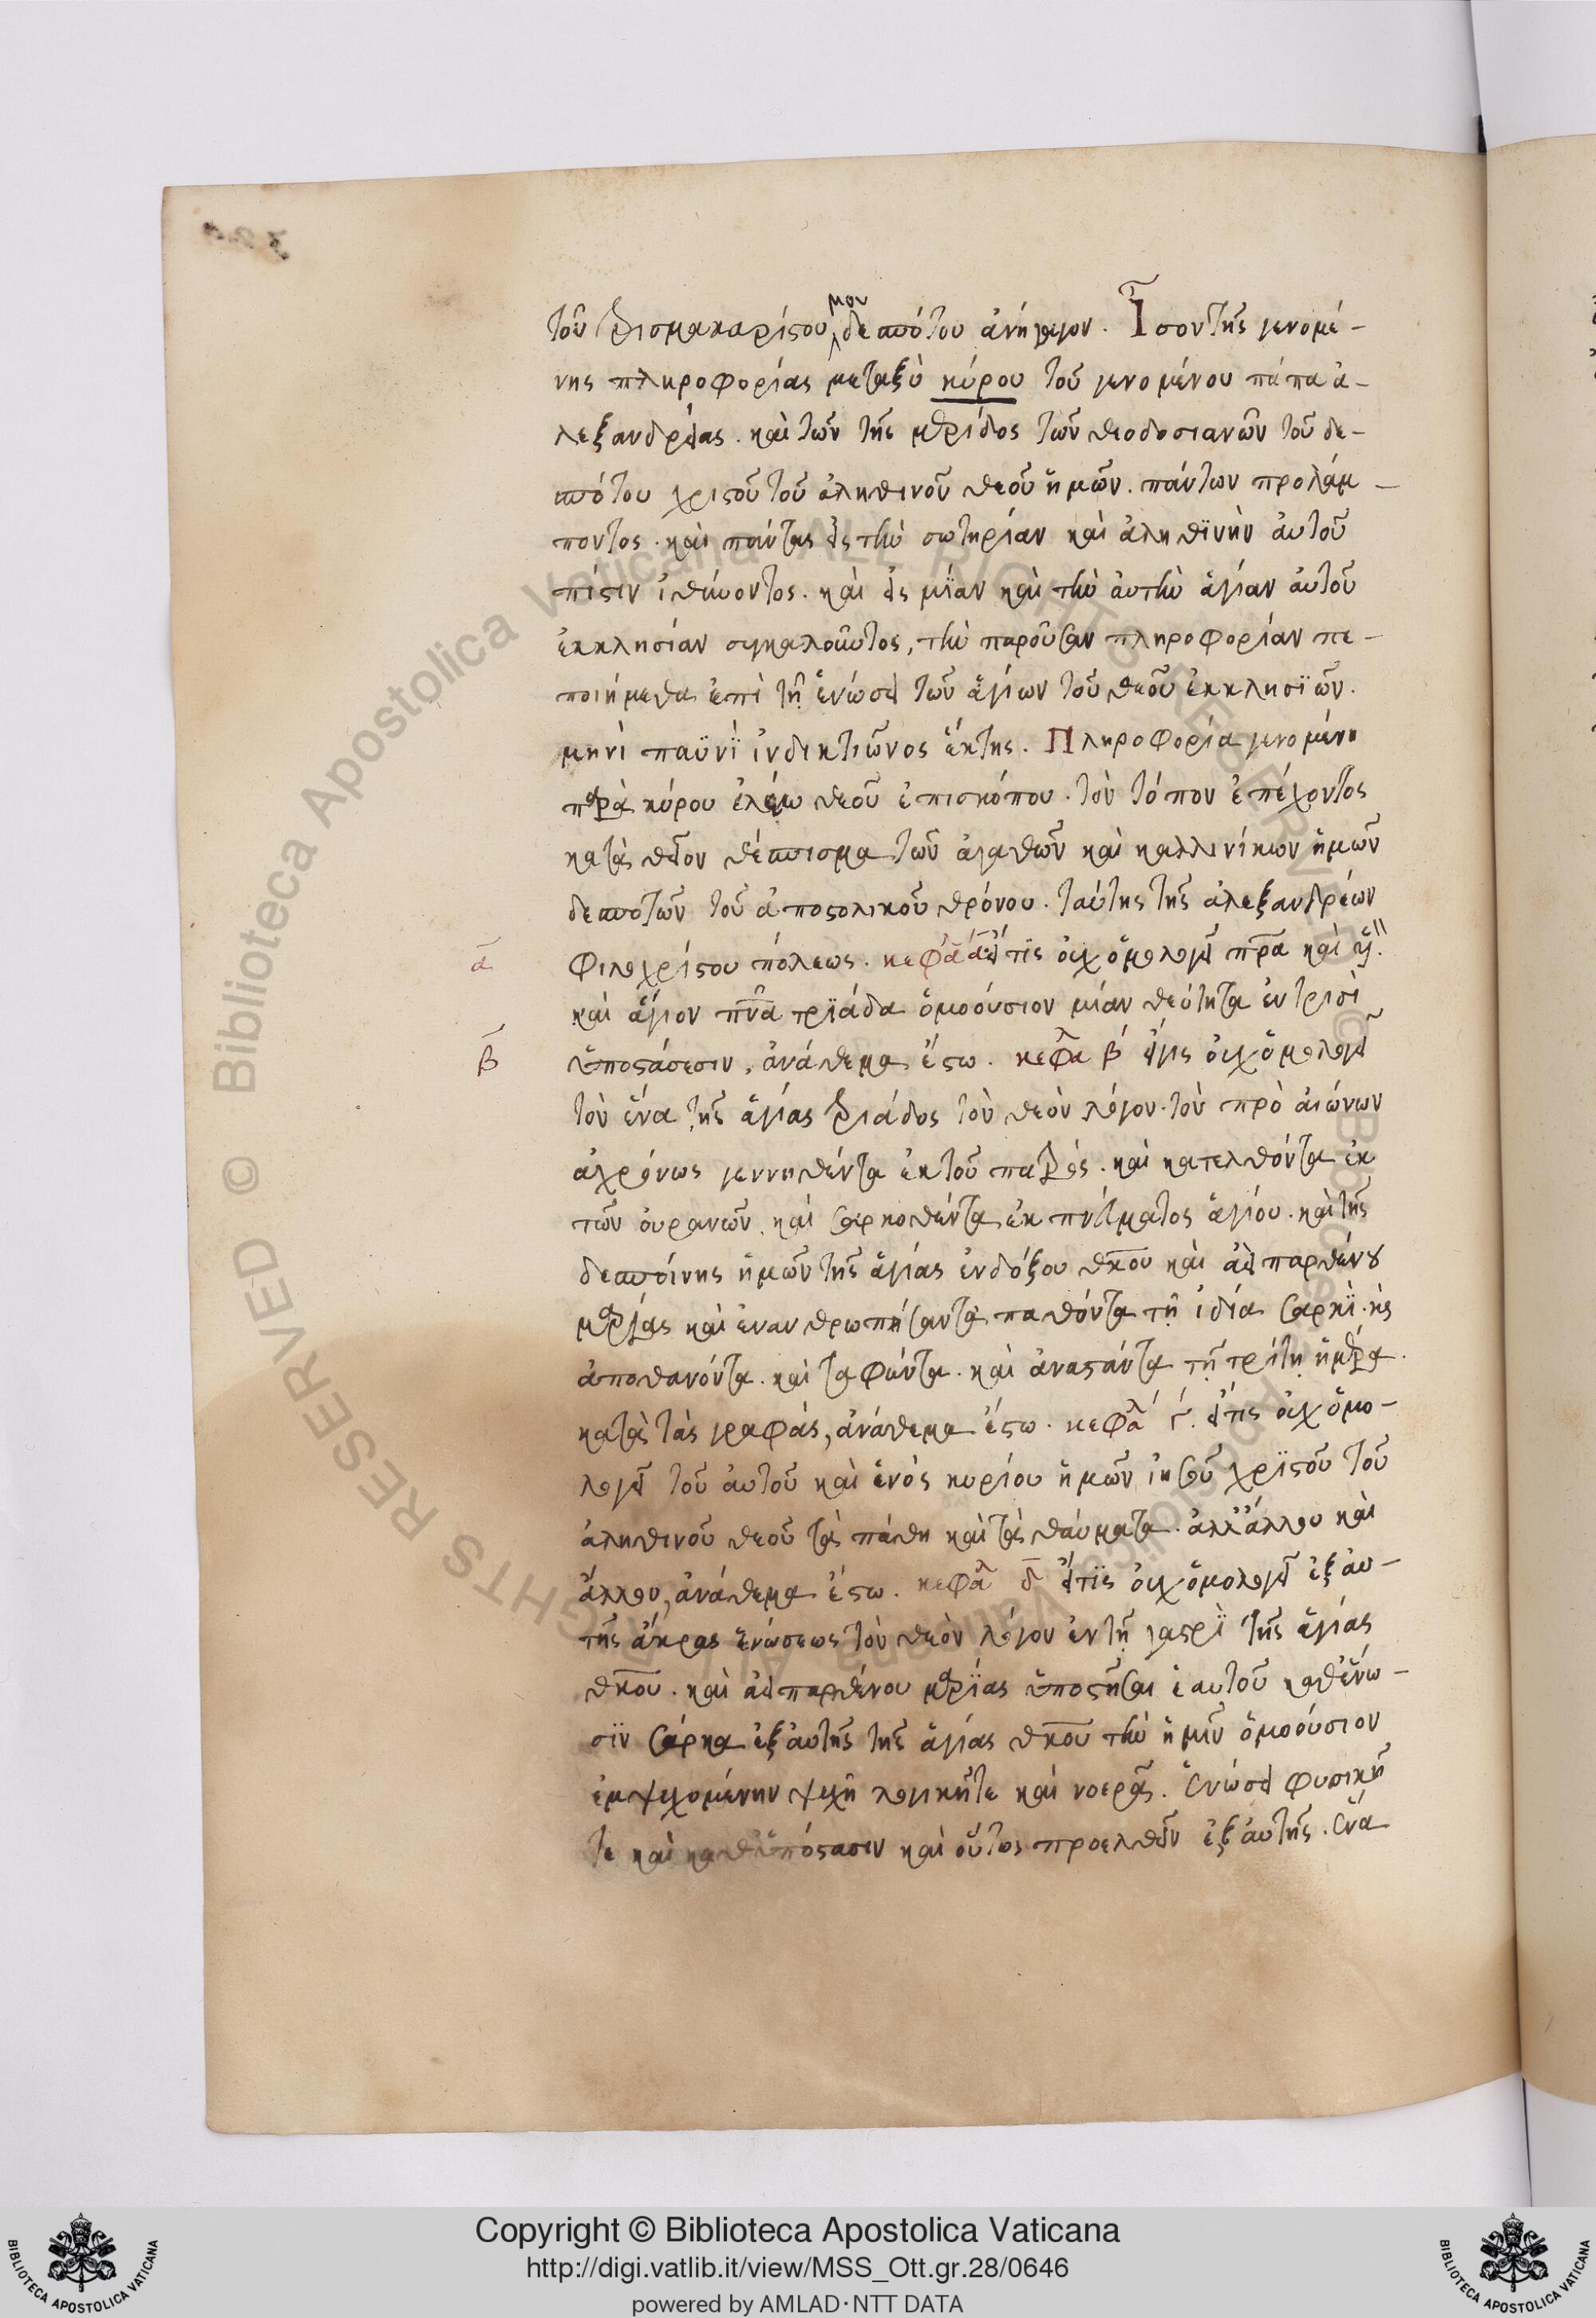 τοῦ τρισμακαρίστου μου δεσπότου ἀνήγαγον. Ἴσον τῆς γενομέ-
νης πληροφορίας μεταξὺ κύρου τοῦ γενομένου πάπα ἀ-
λεξανδρείας. καὶ τῶν τῆς μερίδος τῶν θεοδοσιανῶν τοῦ δε-
σπότου χριστοῦ τοῦ ἀληθινοῦ θεοῦ ἡμῶν. πάντων προλάμ-
ποντος. καὶ πάντας εἰς τὴν σωτηρίαν καὶ ἀληθϊνὴν αὐτοῦ
πίστιν ἰθύνοντος. καὶ εἰς μίαν καὶ τὴν αὐτὴν ἁγίαν αὐτοῦ
ἐκκλησίαν συγκαλοῦντος, τὴν παροῦσαν πληροφορίαν πε-
ποιήμεθα ἐπὶ τῆ ἑνώσει τῶν ἁγίων τοῦ θεοῦ ἐκκλησϊῶν.
μηνὶ παϋνῒ ἰνδικτιῶνος ἕκτης. Πληροφορία γενομένη
παρὰ κύρου ἐλέω θεοῦ ἐπισκόπου. τὸν τόπον ἐπέχοντος
κατὰ θεῖον θέσπισμα τῶν ἀγαθῶν καὶ καλλινίκων ἡμῶν
δεσποτῶν τοῦ ἀποστολικοῦ θρόνου. ταύτης τῆς ἀλεξανδρέων
α φιλοχρίστου πόλεως. κεφα α εἴ τϊς οὐχ ὁμολογεῖ πρα καὶ υν.
καὶ ἅγιον πνα τριάδα ὁμοούσιον μίαν θεότητα ἐν τρισὶ
β ὑποστάσεσιν, ἀνάθεμα ἔστω. κεφα β εἴ τις οὐχ ὁμολογεῖ
τὸν ἕνα τῆς ἁγίας τριάδος τὸν θεὸν λόγον. τὸν πρὸ αἰώνων
ἀχρόνως γεννηθέντα ἐκ τοῦ πατρός. καὶ κατελθόντα ἐκ
τῶν οὐρανῶν. καὶ σαρκοθέντα ἐκ πνεύματος ἁγίου. καὶ τῆς
δεσποίνης ἡμῶν τῆς ἁγίας ἐνδόξου θκου καὶ ἀεὶ παρθένου
μαρίας καὶ ἐνανθρωπήσαντα παθόντα τῆ ἰδία σαρκῒ. καὶ
ἀποθανόντα. καὶ ταφέντα. καὶ ἀναστάντα τῇ τρίτη ἡμέρα.
κατὰ τὰς γραφὰς, ἀνάθεμα ἔστω. κεφα γ. εἴ τις οὐχ ὁμο-
λογεῖ τοῦ αὐτοῦ καὶ ἑνὸς κυρίου ἡμῶν ἰησοῦ χριστοῦ τοῦ
ἀληθινοῦ θεοῦ τὰ πάθη καὶ τὰ θαύματα. ἀλλ ἄλλου καὶ
ἄλλου, ἀνάθεμα ἔστω. κεφα δ εἴ τϊς οὐχ ὁμολογεῖ ἐξ αὐ-
τῆς ἄκρας ἑνώσεως τὸν θεὸν λόγον ἐν τῇ γαστρῒ τῆς ἁγίας
θκου. καὶ ἀεὶ παρθένου μαρίας ὑποστῆσαι ἑαυτοῦ καθ ἕνω-
σϊν σάρκα ἐξ αὐτῆς τῆς ἁγίας θκου τὴν ἡμῖν ὁμοούσιον
ἐμψυχομένην ψυχῆ λογικῆ τε καὶ νοερᾶ. ἑνώσει φυσικῇ
τε καὶ καθ ὑπόστασιν καὶ οὕτως προελθεῖν ἐξ αὐτῆς. ἕνα
© Biblioteca Apostolica Vaticana ALL RIGHTS RESERVED
Copyright © Biblioteca Apostolica Vaticana
http://digi.vatlib.it/view/MSS_Ott.gr.28/0646
powered by AMLAD·NTT DATA
BIBLIOTECA APOSTOLICA VATICANA
BIBLIOTECA APOSTOLICA VATICANA